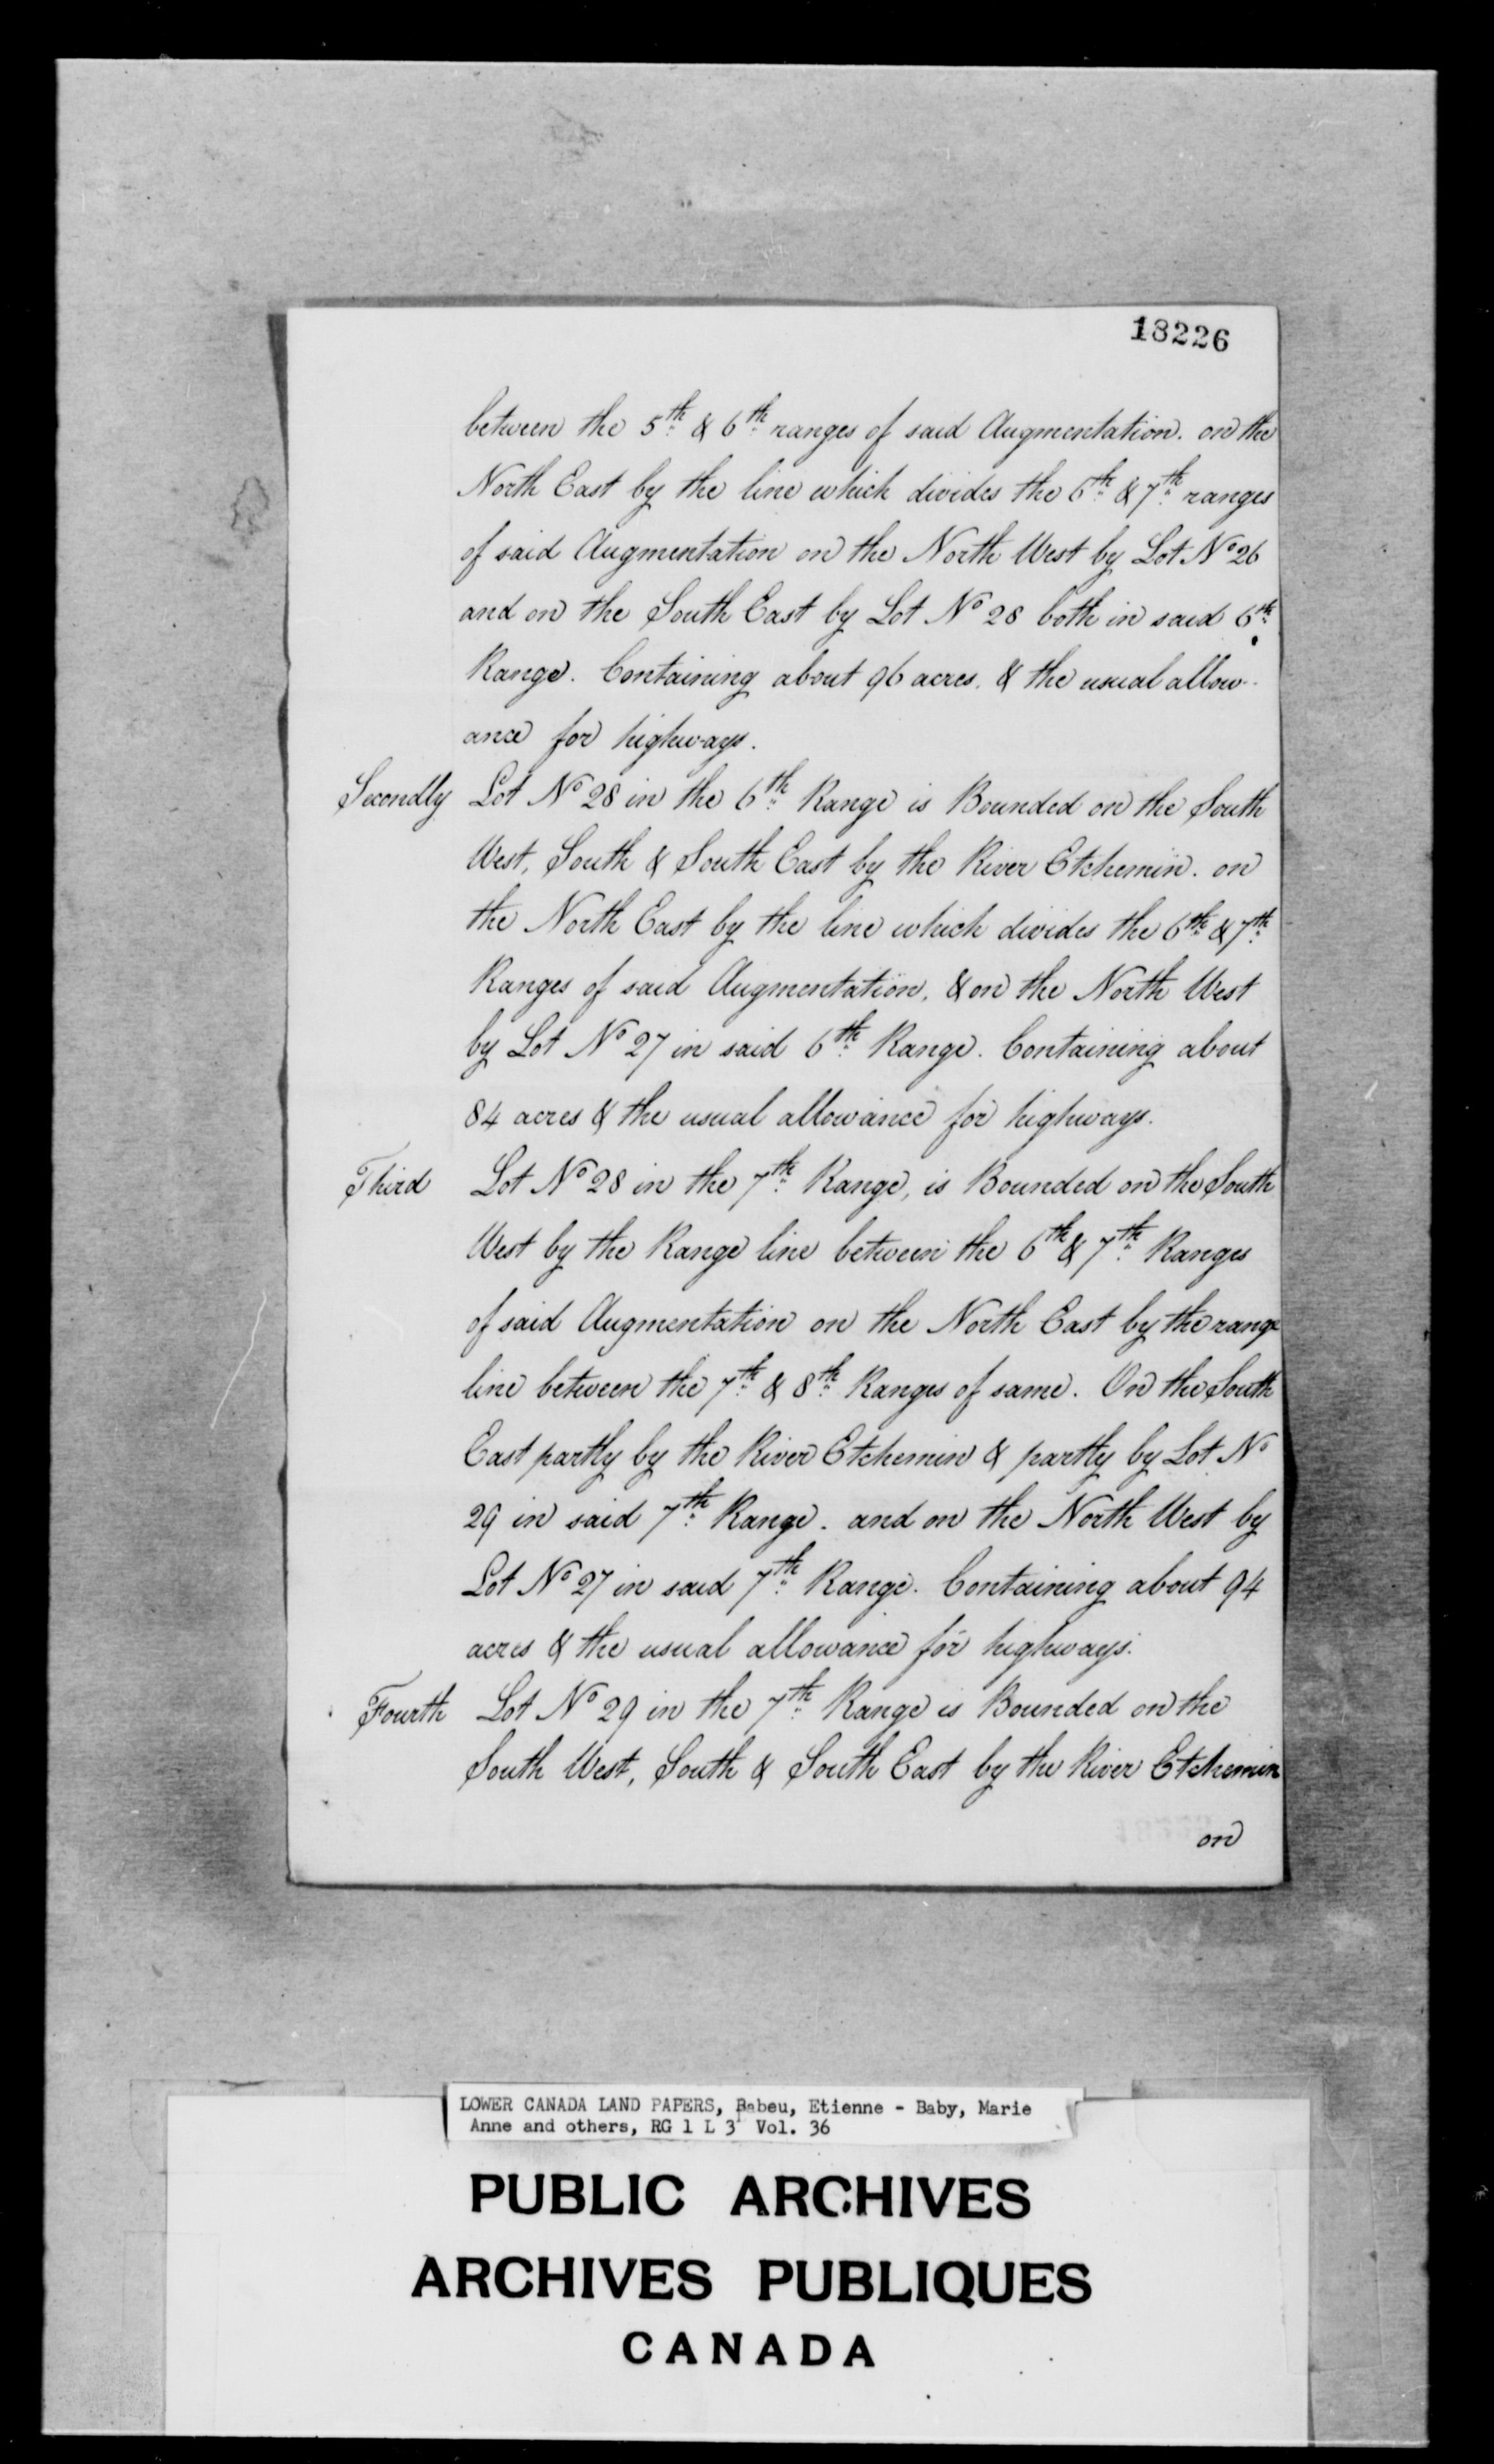 18226
between the 5th & 6th ranges of said Augmentation. on the
North East by the line which divides the 6th & 7th ranges
of said Augmentation on the North West by Lot No 26
and on the South East by Lot No 28 both in said 6th
Range. Containing about 96 acres. & the usual allow-
ance for highways.
Secondly Lot No 28 in the 6th Range is Bounded on the South
West, South & South East by the River Etchemin. on
the North East by the line which divides the 6th & 7th
Ranges of said Augmentation, & on the North West
by Lot No 27 in said 6th Range. Containing about
84 acres & the usual allowance for highways.
Third Lot No 28 in the 7th Range, is Bounded on the South
West by the Range line between the 6th & 7th Ranges
of said Augmentation on the North East by the range
line between the 7th & 8th Ranges of same. On the South
East partly by the River Etchemin & partly by Lot No
29 in said 7th Range. and on the North West by
Lot No 27 in said 7th Range. Containing about 94
acres & the usual allowance for highways.
Fourth Lot No 29 in the 7th Range is Bounded on the
South West, South & South East by the River Etchemin
on
LOWER CANADA LAND PAPERS, Babeu, Etienne - Baby, Marie
Anne and others, RG 1 L 3 Vol. 36
PUBLIC ARCHIVES
ARCHIVES PUBLIQUES
CANADA